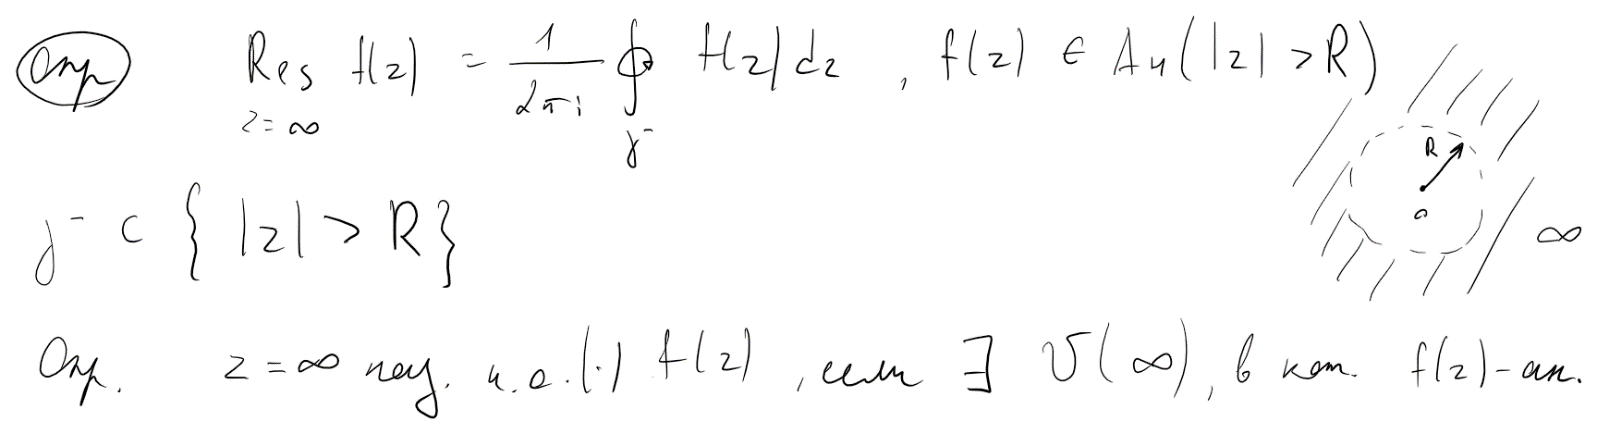 Опр Res f(z) = 1/(2πi) ∮ f(z)dz , f(z) ∈ Ан(|z| > R)
z=∞ γ⁻
R
0
γ⁻ ⊂ { |z| > R }
∞
Опр. z = ∞ наз. и.о.(·) f(z), если ∃ U(∞), в кот. f(z)-ан.